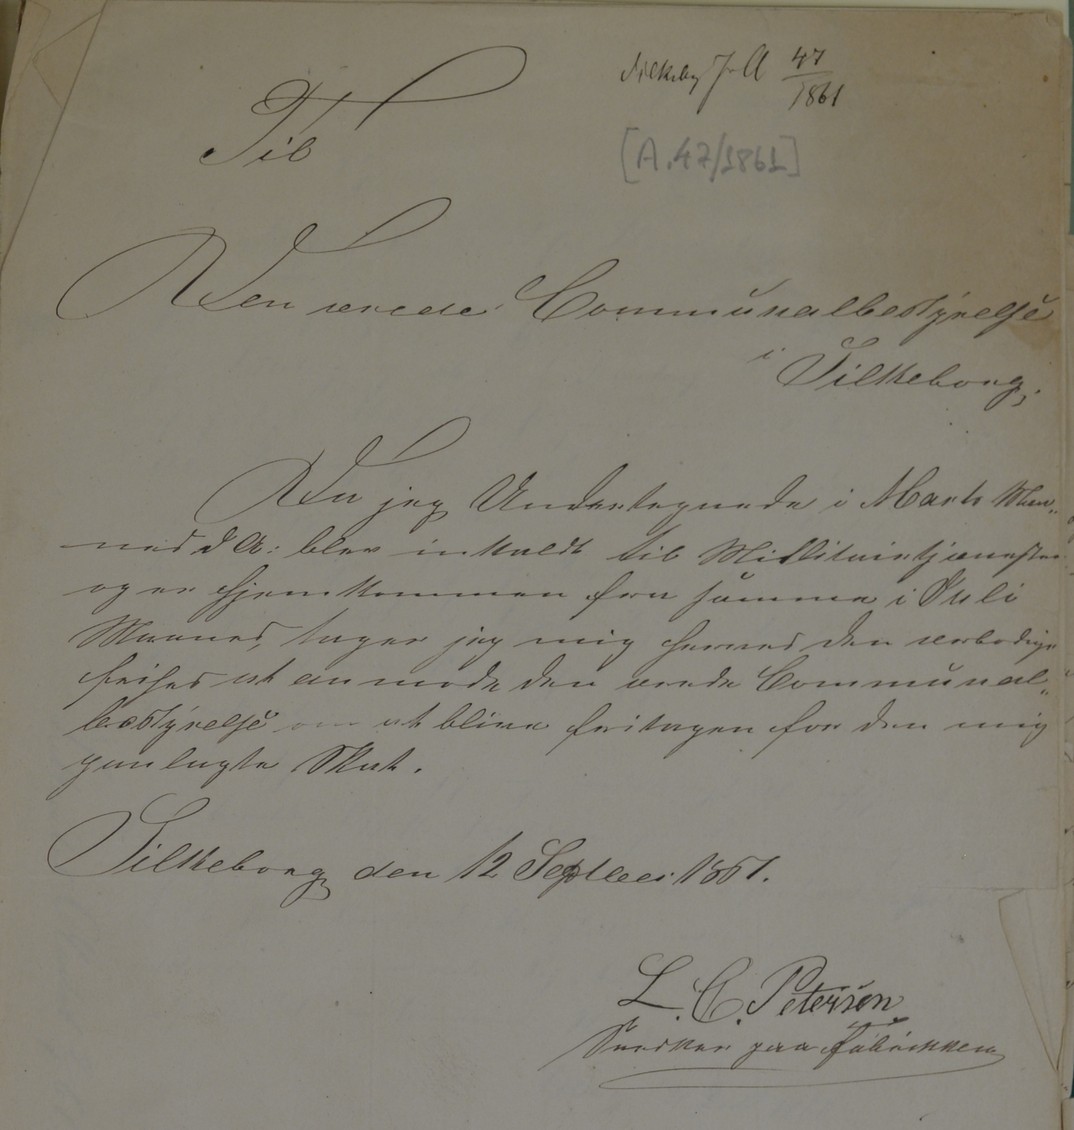 Silkebg J. A 47/1861
[A.47/1861]
Til
Den ærede Communalbestÿrelse
i Silkeborg.
Da jeg Undertegnede i Marts Maa„
ned d A: blev inkaldt til Millitairtjæneste
og er hjemkommen fra samme i Juli
Maaned, tager jeg mig herved den ærbødige
frihed at anmode den ærede Communal„
bestÿrelse om at blive fritagen for den mig
paalagte Skat.
Silkeborg den 12 Septbr 1861.
L. C. Petersen
Snedker paa Fabrikken